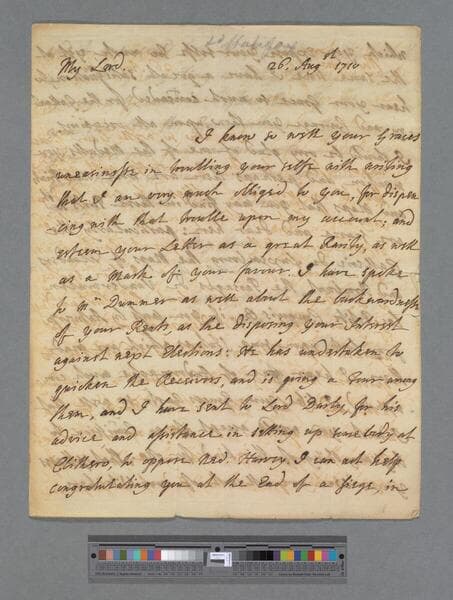 Ld Halifax
My Lord. 26. Augst 1710
I know so well your Graces
uneasinesse in troubling your selfe with writing
that I am very much obliged to You, for dispen
-cing with that trouble upon my account; and
esteem your Letter as a great Rarity, as well
as a Mark of your favour. I have spoke
to Mr Dummer as well about the backwardnesse
of your Rents, as the disposing your Interest
against next Elections: He has undertaken to
quicken the Receivers, and is going a Tour among
them, and I have sent to Lord Darby, for his
advice and assistance in setting up some body at
Clithero, to oppose Ned. Harvey. I can not help
congratulating you at the End of a siege, in